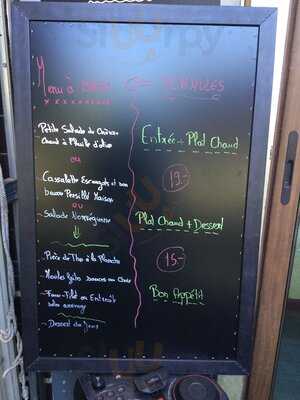 Menu à
Petite Salade de Chèvre
Chaud à l'huile d'olive
ou
Cassolette Escargots et son
beurre Persillé Maison
ou
- Salade Norvégienne
- Pièce de Thon à la Plancha
- Moules
- Faux-Filet ou Entrecôte
- Dessert du Jour
FORMULES
Entrée + Plat Chaud
19.-
Plat Chaud + Dessert
15.-
Bon Appétit